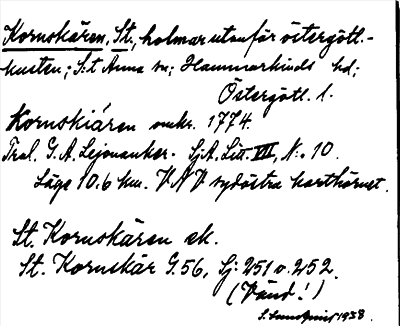 Kornskären, St., holmar utanför östergötl.-
kusten; S:t Anna sn; Hammarkinds hd;
Östergötl. l.
Kornskiären omkr. 1774.
Tral. G. A. Lejonanker. Sj.A. Litt. VII, N:o 10.
Läge 10.6 km. VNV sydöstra karthörnet.
St. Kornskären ek.
St. Kornskär G.56, Sj: 251 o. 252.
(Vänd!)
S. Sundqvist 1938.